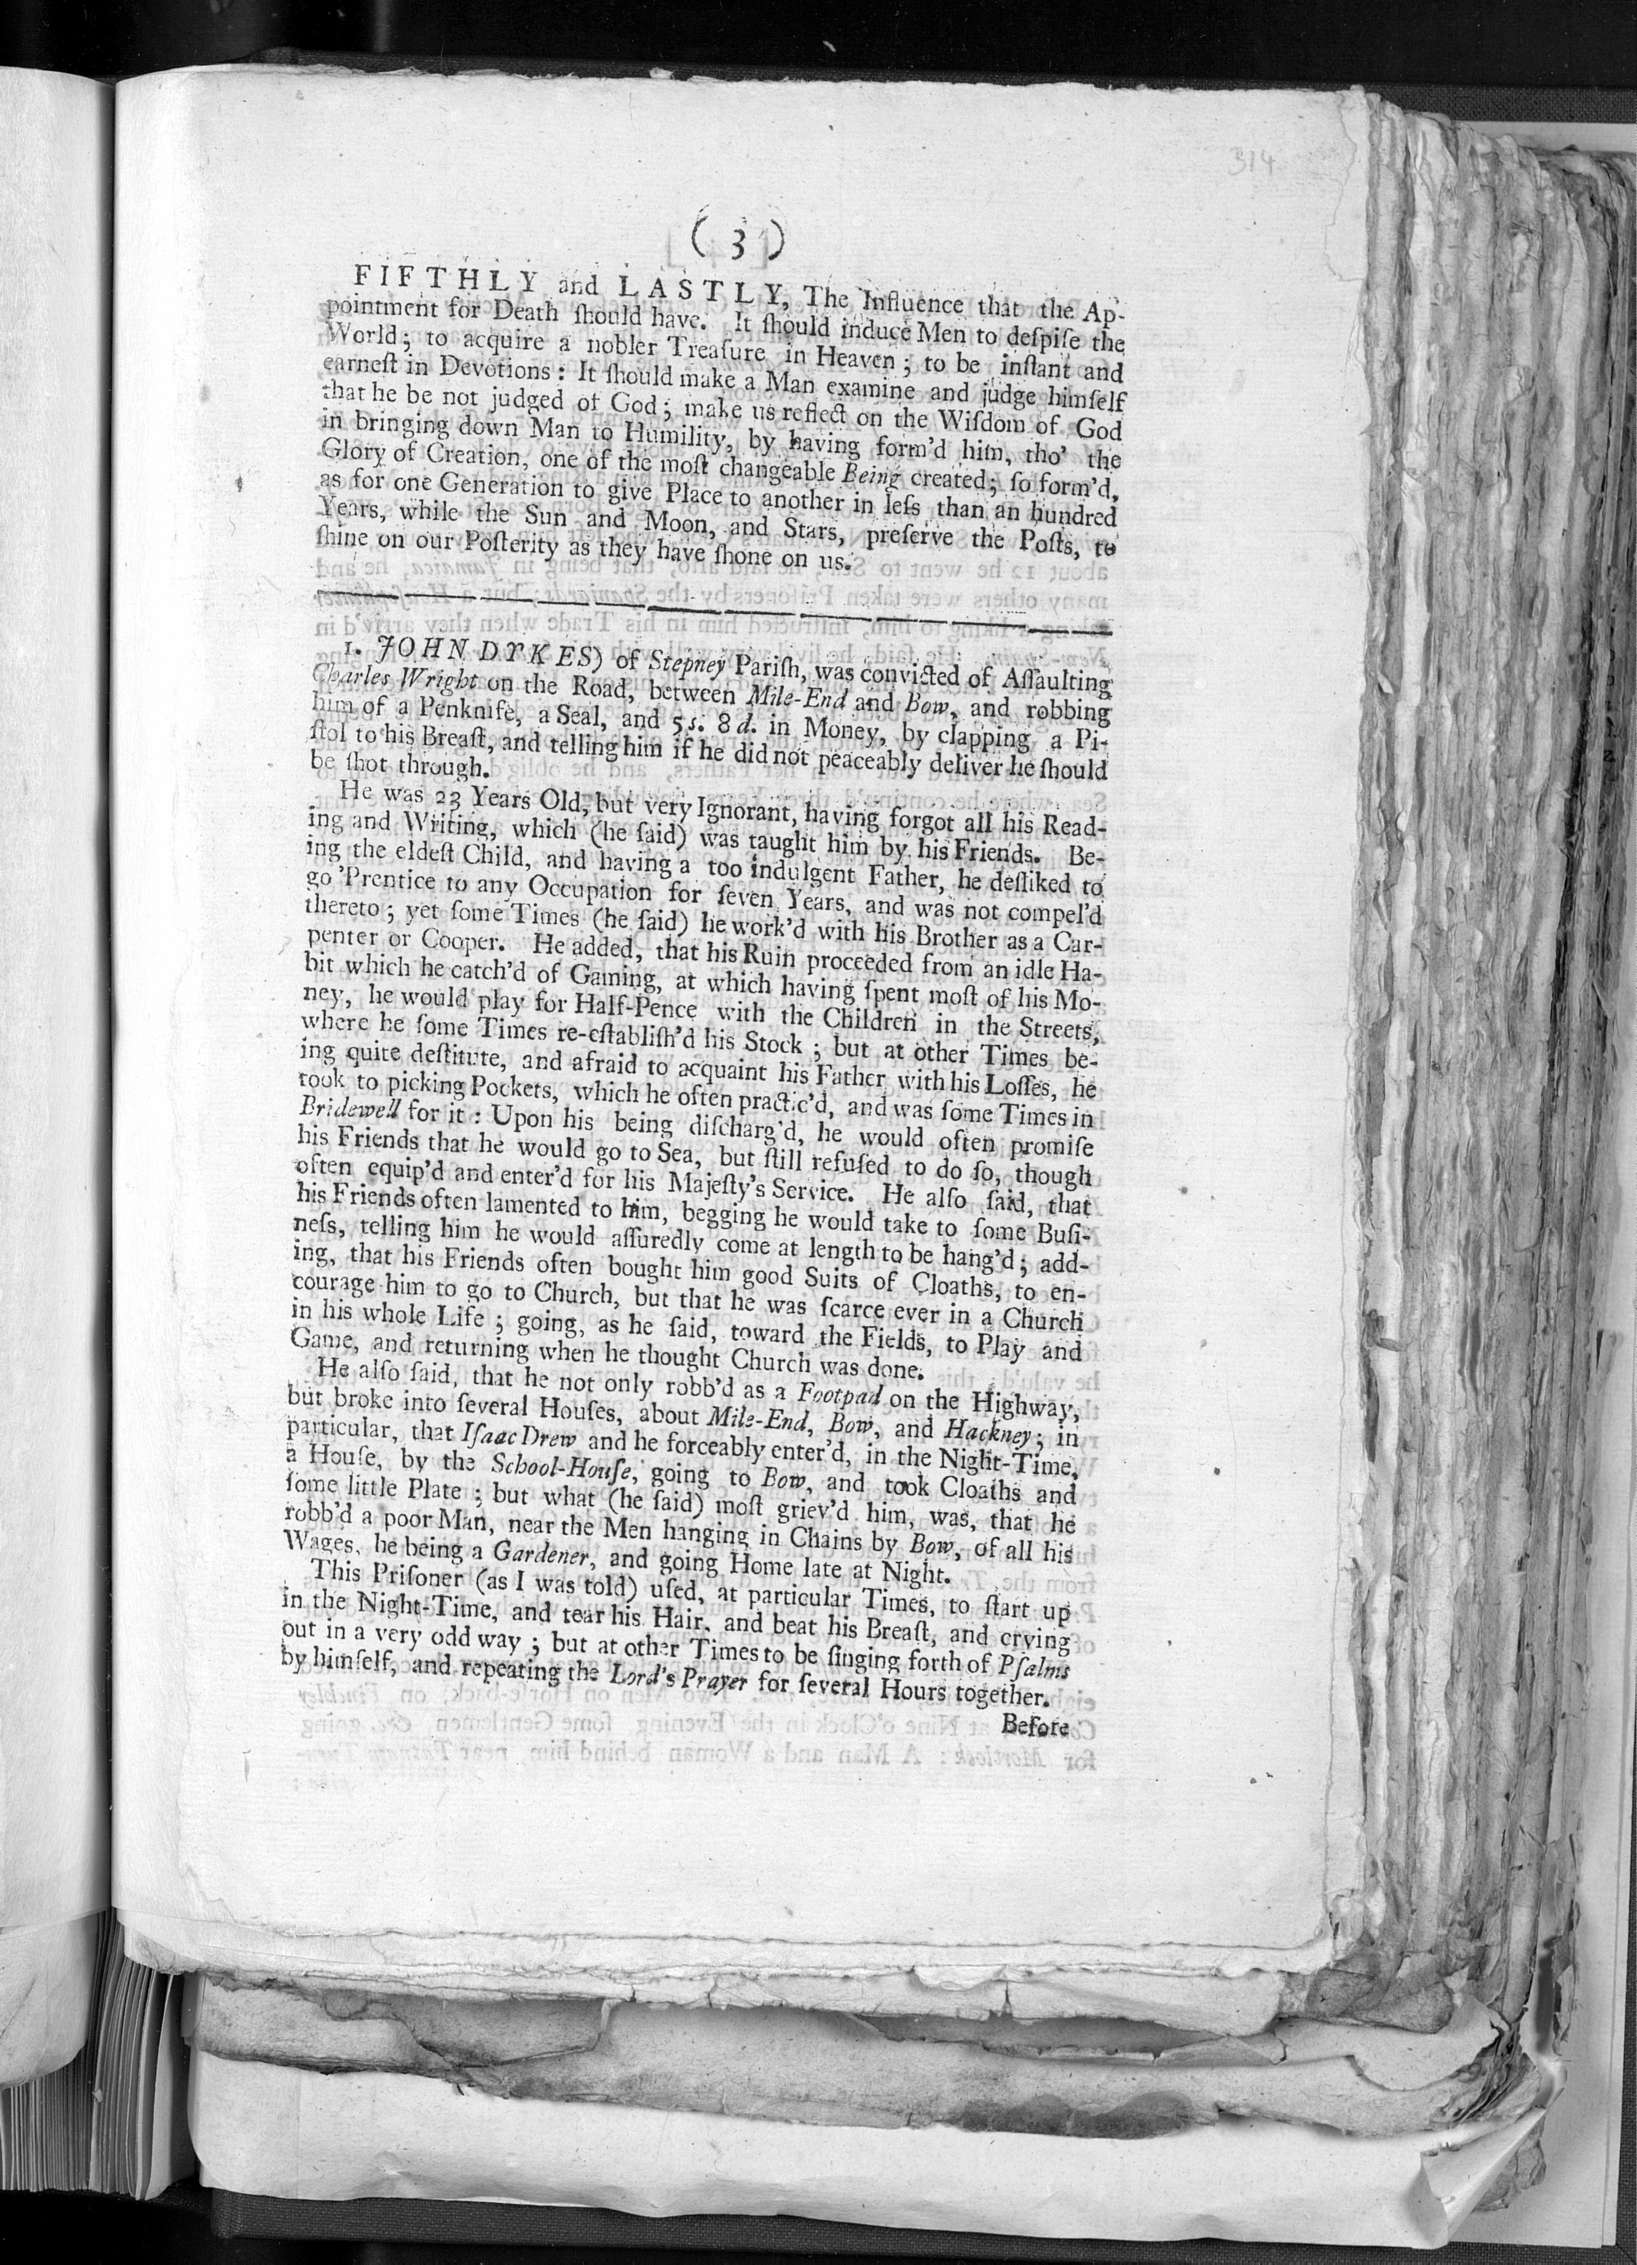 314
( 3 )
FIFTHLY and LASTLY, The Influence that the Ap-
pointment for Death ſhould have. It ſhould induce Men to deſpiſe the
World; to acquire a nobler Treaſure in Heaven; to be inſtant and
earneſt in Devotions: It ſhould make a Man examine and judge himſelf
that he be not judged of God; make us reflect on the Wiſdom of God
in bringing down Man to Humility, by having form'd him, tho' the
Glory of Creation, one of the moſt changeable Being created; ſo form'd,
as for one Generation to give Place to another in leſs than an hundred
Years, while the Sun and Moon, and Stars, preſerve the Poſts, to
ſhine on our Poſterity as they have ſhone on us.
1. JOHN DYKES) of Stepney Pariſh, was convicted of Aſſaulting
Charles Wright on the Road, between Mile-End and Bow, and robbing
him of a Penknife, a Seal, and 5s. 8d. in Money, by clapping a Pi-
ſtol to his Breaſt, and telling him if he did not peaceably deliver he ſhould
be ſhot through.
He was 23 Years Old, but very Ignorant, having forgot all his Read-
ing and Writing, which (he ſaid) was taught him by his Friends. Be-
ing the eldeſt Child, and having a too indulgent Father, he deſliked to
go 'Prentice to any Occupation for ſeven Years, and was not compel'd
thereto; yet ſome Times (he ſaid) he work'd with his Brother as a Car-
penter or Cooper. He added, that his Ruin proceeded from an idle Ha-
bit which he catch'd of Gaming, at which having ſpent moſt of his Mo-
ney, he would play for Half-Pence with the Children in the Streets,
where he ſome Times re-eſtabliſh'd his Stock; but at other Times be-
ing quite deſtitute, and afraid to acquaint his Father with his Loſſes, he
took to picking Pockets, which he often practic'd, and was ſome Times in
Bridewell for it: Upon his being diſcharg'd, he would often promiſe
his Friends that he would go to Sea, but ſtill refuſed to do ſo, though
often equip'd and enter'd for his Majeſty's Service. He alſo ſaid, that
his Friends often lamented to him, begging he would take to ſome Buſi-
neſs, telling him he would aſſuredly come at length to be hang'd; add-
ing, that his Friends often bought him good Suits of Cloaths, to en-
courage him to go to Church, but that he was ſcarce ever in a Church
in his whole Life; going, as he ſaid, toward the Fields, to Play and
Game, and returning when he thought Church was done.
He alſo ſaid, that he not only robb'd as a Footpad on the Highway,
but broke into ſeveral Houſes, about Mile-End, Bow, and Hackney; in
particular, that Iſaac Drew and he forceably enter'd, in the Night-Time,
a Houſe, by the School-Houſe, going to Bow, and took Cloaths and
ſome little Plate; but what (he ſaid) moſt griev'd him, was, that he
robb'd a poor Man, near the Men hanging in Chains by Bow, of all his
Wages, he being a Gardener, and going Home late at Night.
This Priſoner (as I was told) uſed, at particular Times, to ſtart up
in the Night-Time, and tear his Hair, and beat his Breaſt, and crying
out in a very odd way; but at other Times to be ſinging forth of Pſalms
by himſelf, and repeating the Lord's Prayer for ſeveral Hours together.
Before